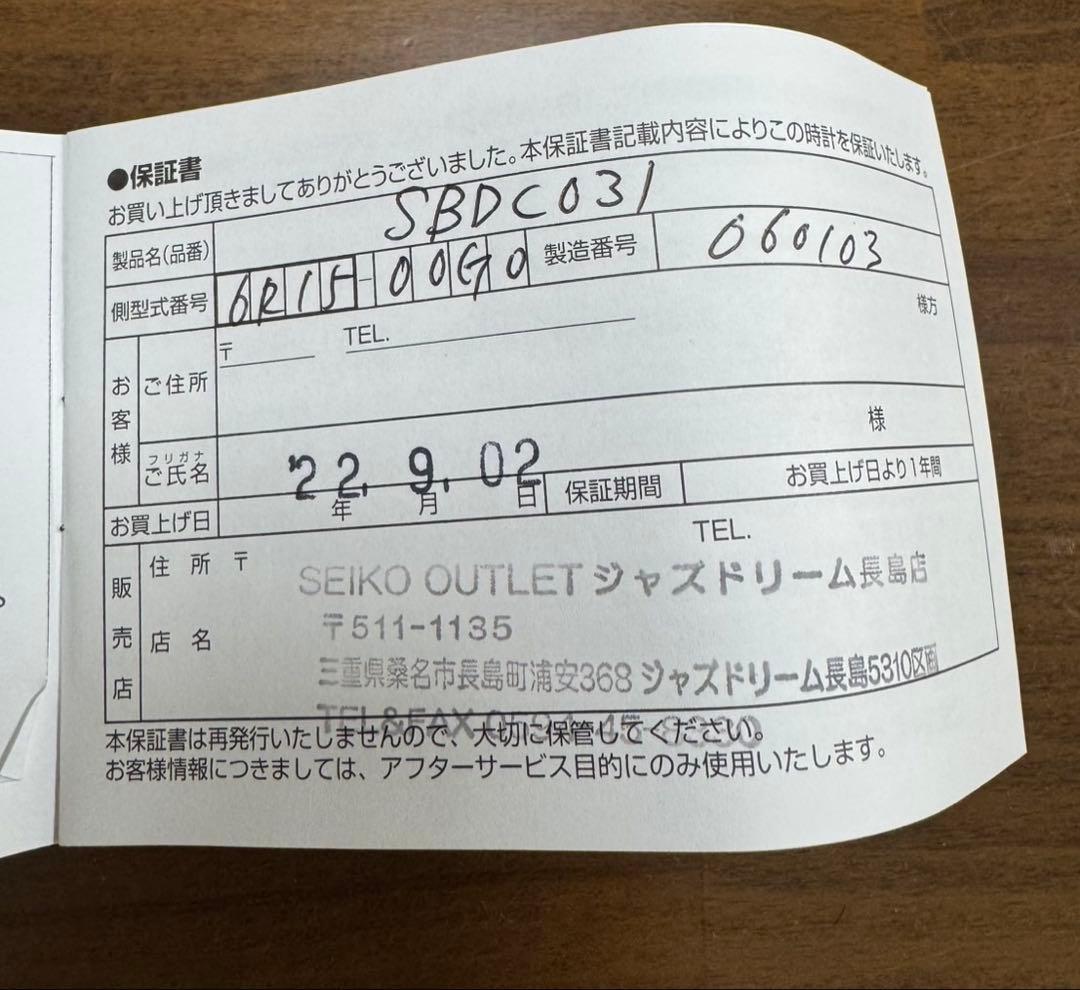 ●保証書
お買い上げ頂きましてありがとうございました。本保証書記載内容によりこの時計を保証いたします。
製品名(品番) SBDC031
側型式番号 6R15-00G0 製造番号 060103
お客様 ご住所 〒 TEL. 様方
フリガナ
ご氏名 様
お買上げ日 '22. 9. 02 年 月 日 保証期間 お買上げ日より1年間
販売店 住所 〒 TEL.
SEIKO OUTLET ジャズドリーム長島店
〒511-1135
店名
三重県桑名市長島町浦安368 ジャズドリーム長島5310区画
TEL&FAX 0594-45-
本保証書は再発行いたしませんので、大切に保管してください。
お客様情報につきましては、アフターサービス目的にのみ使用いたします。